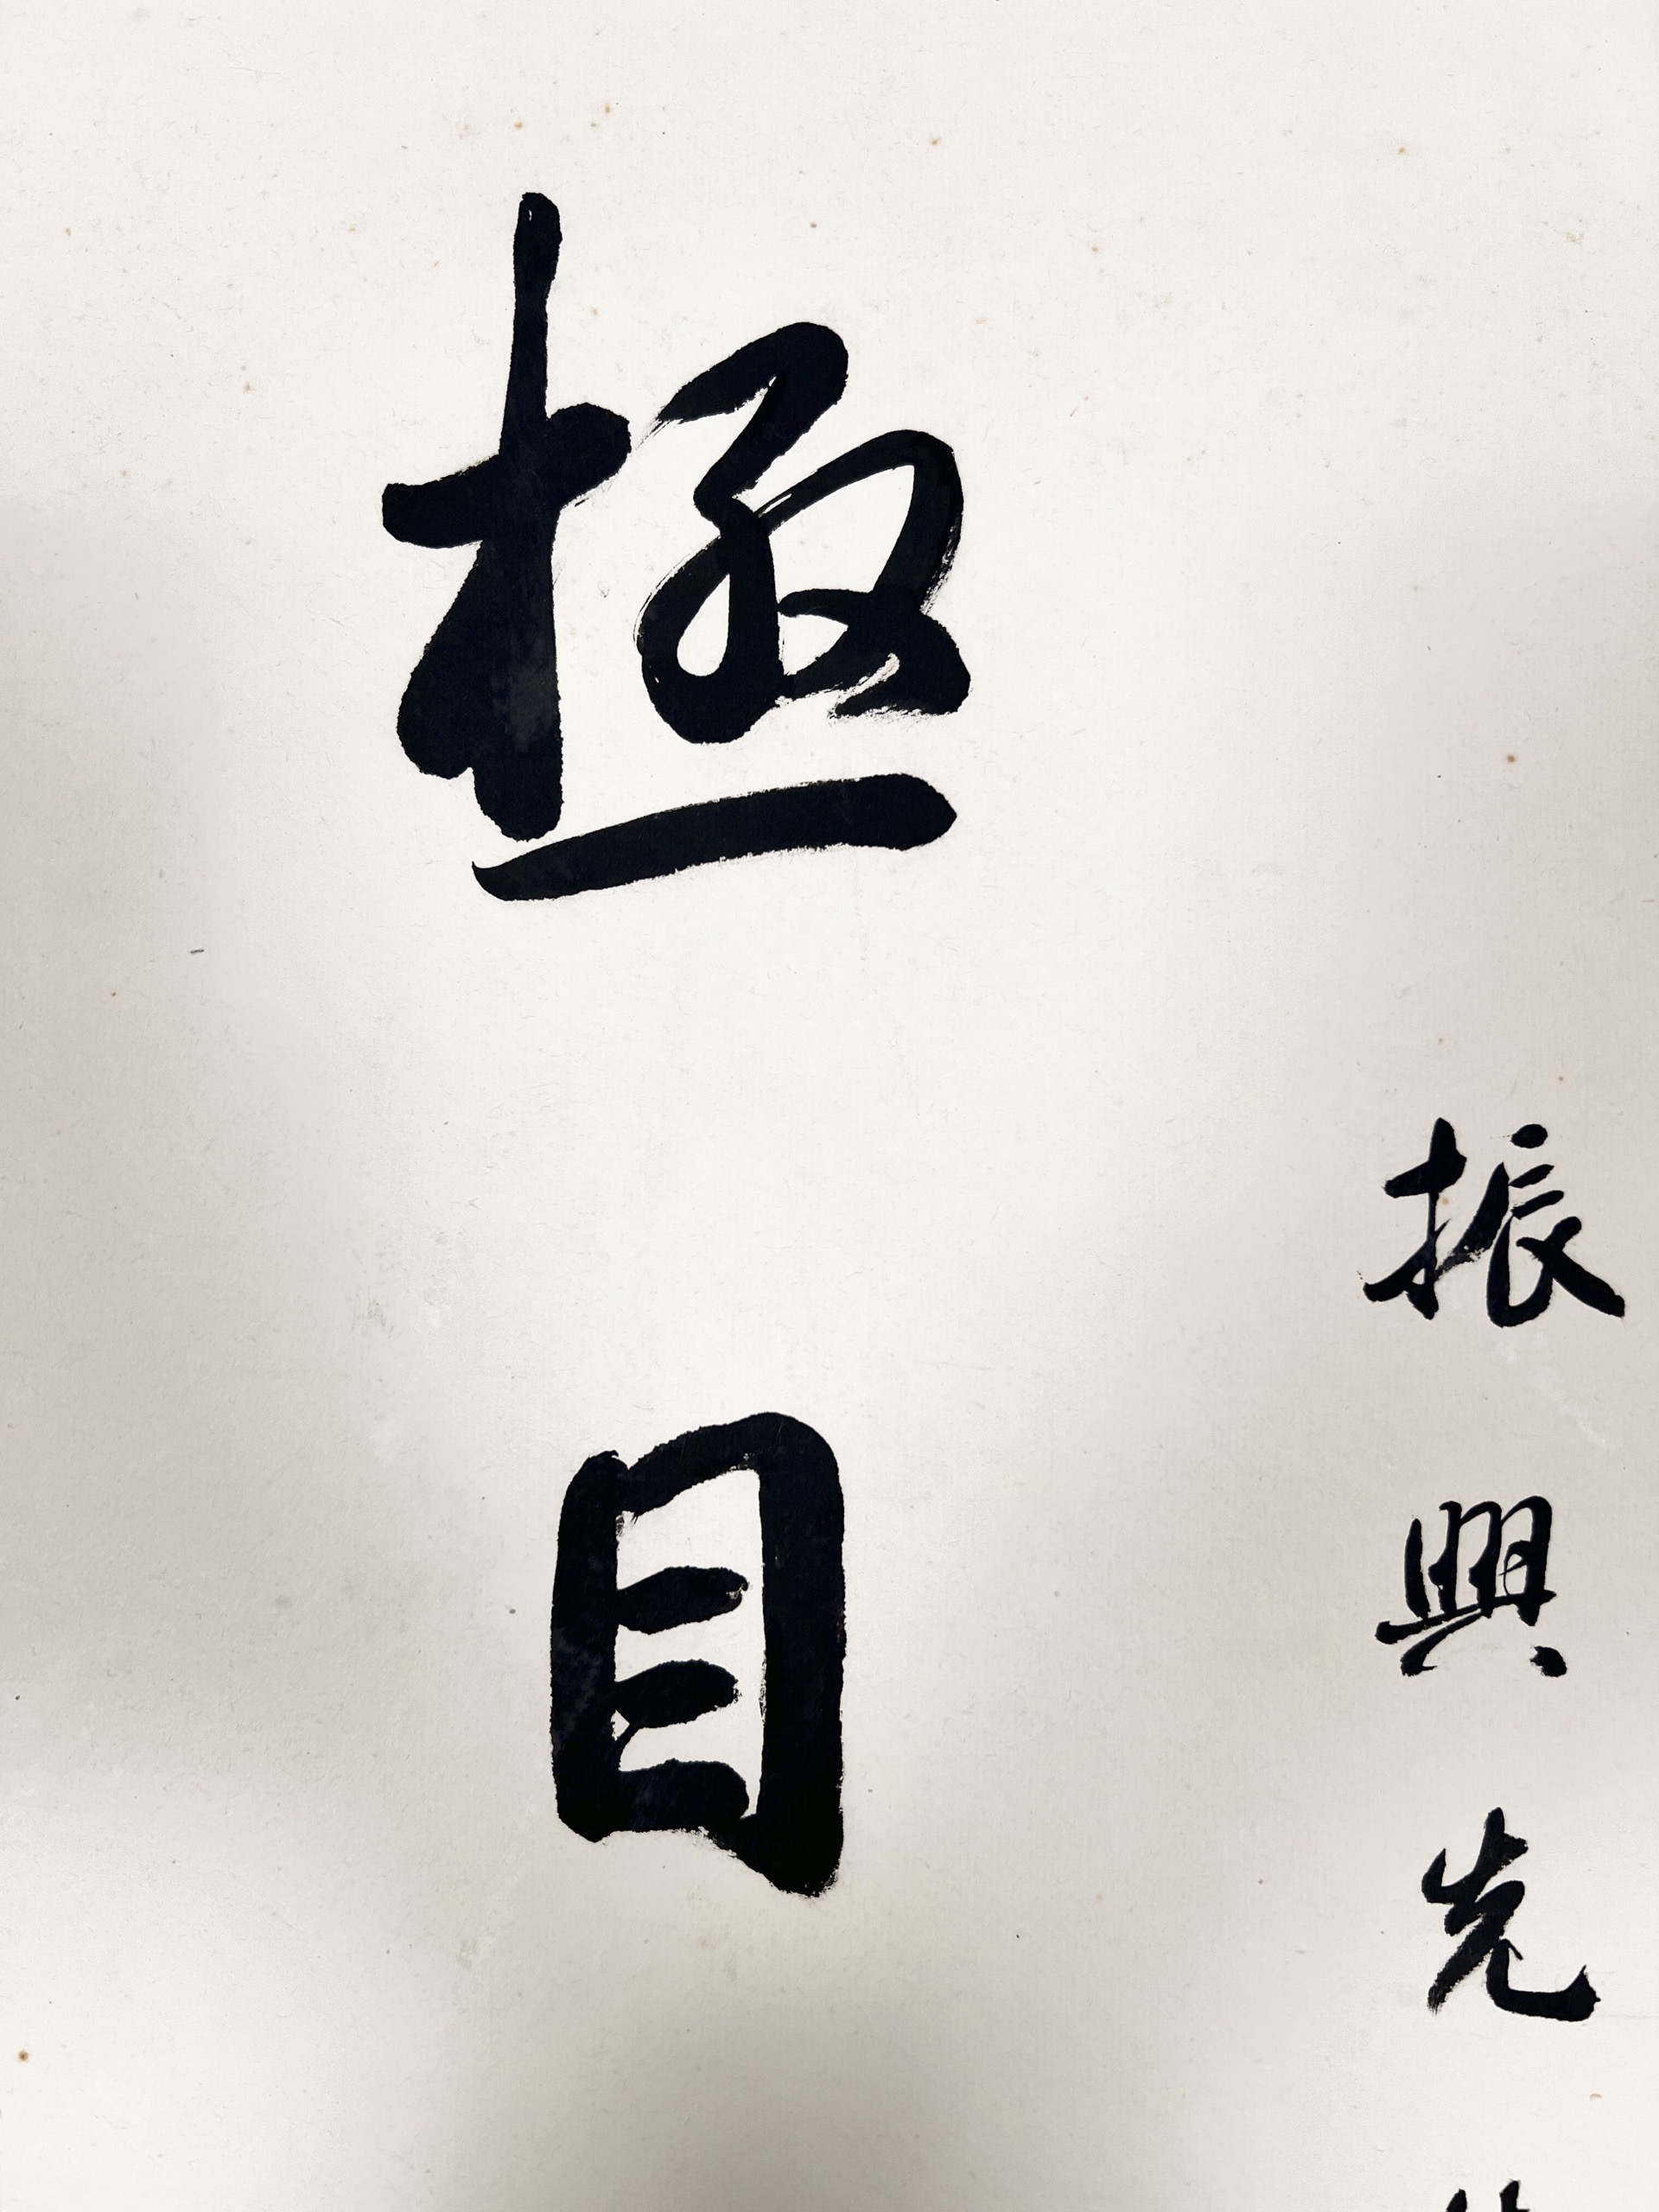 振興先
極目